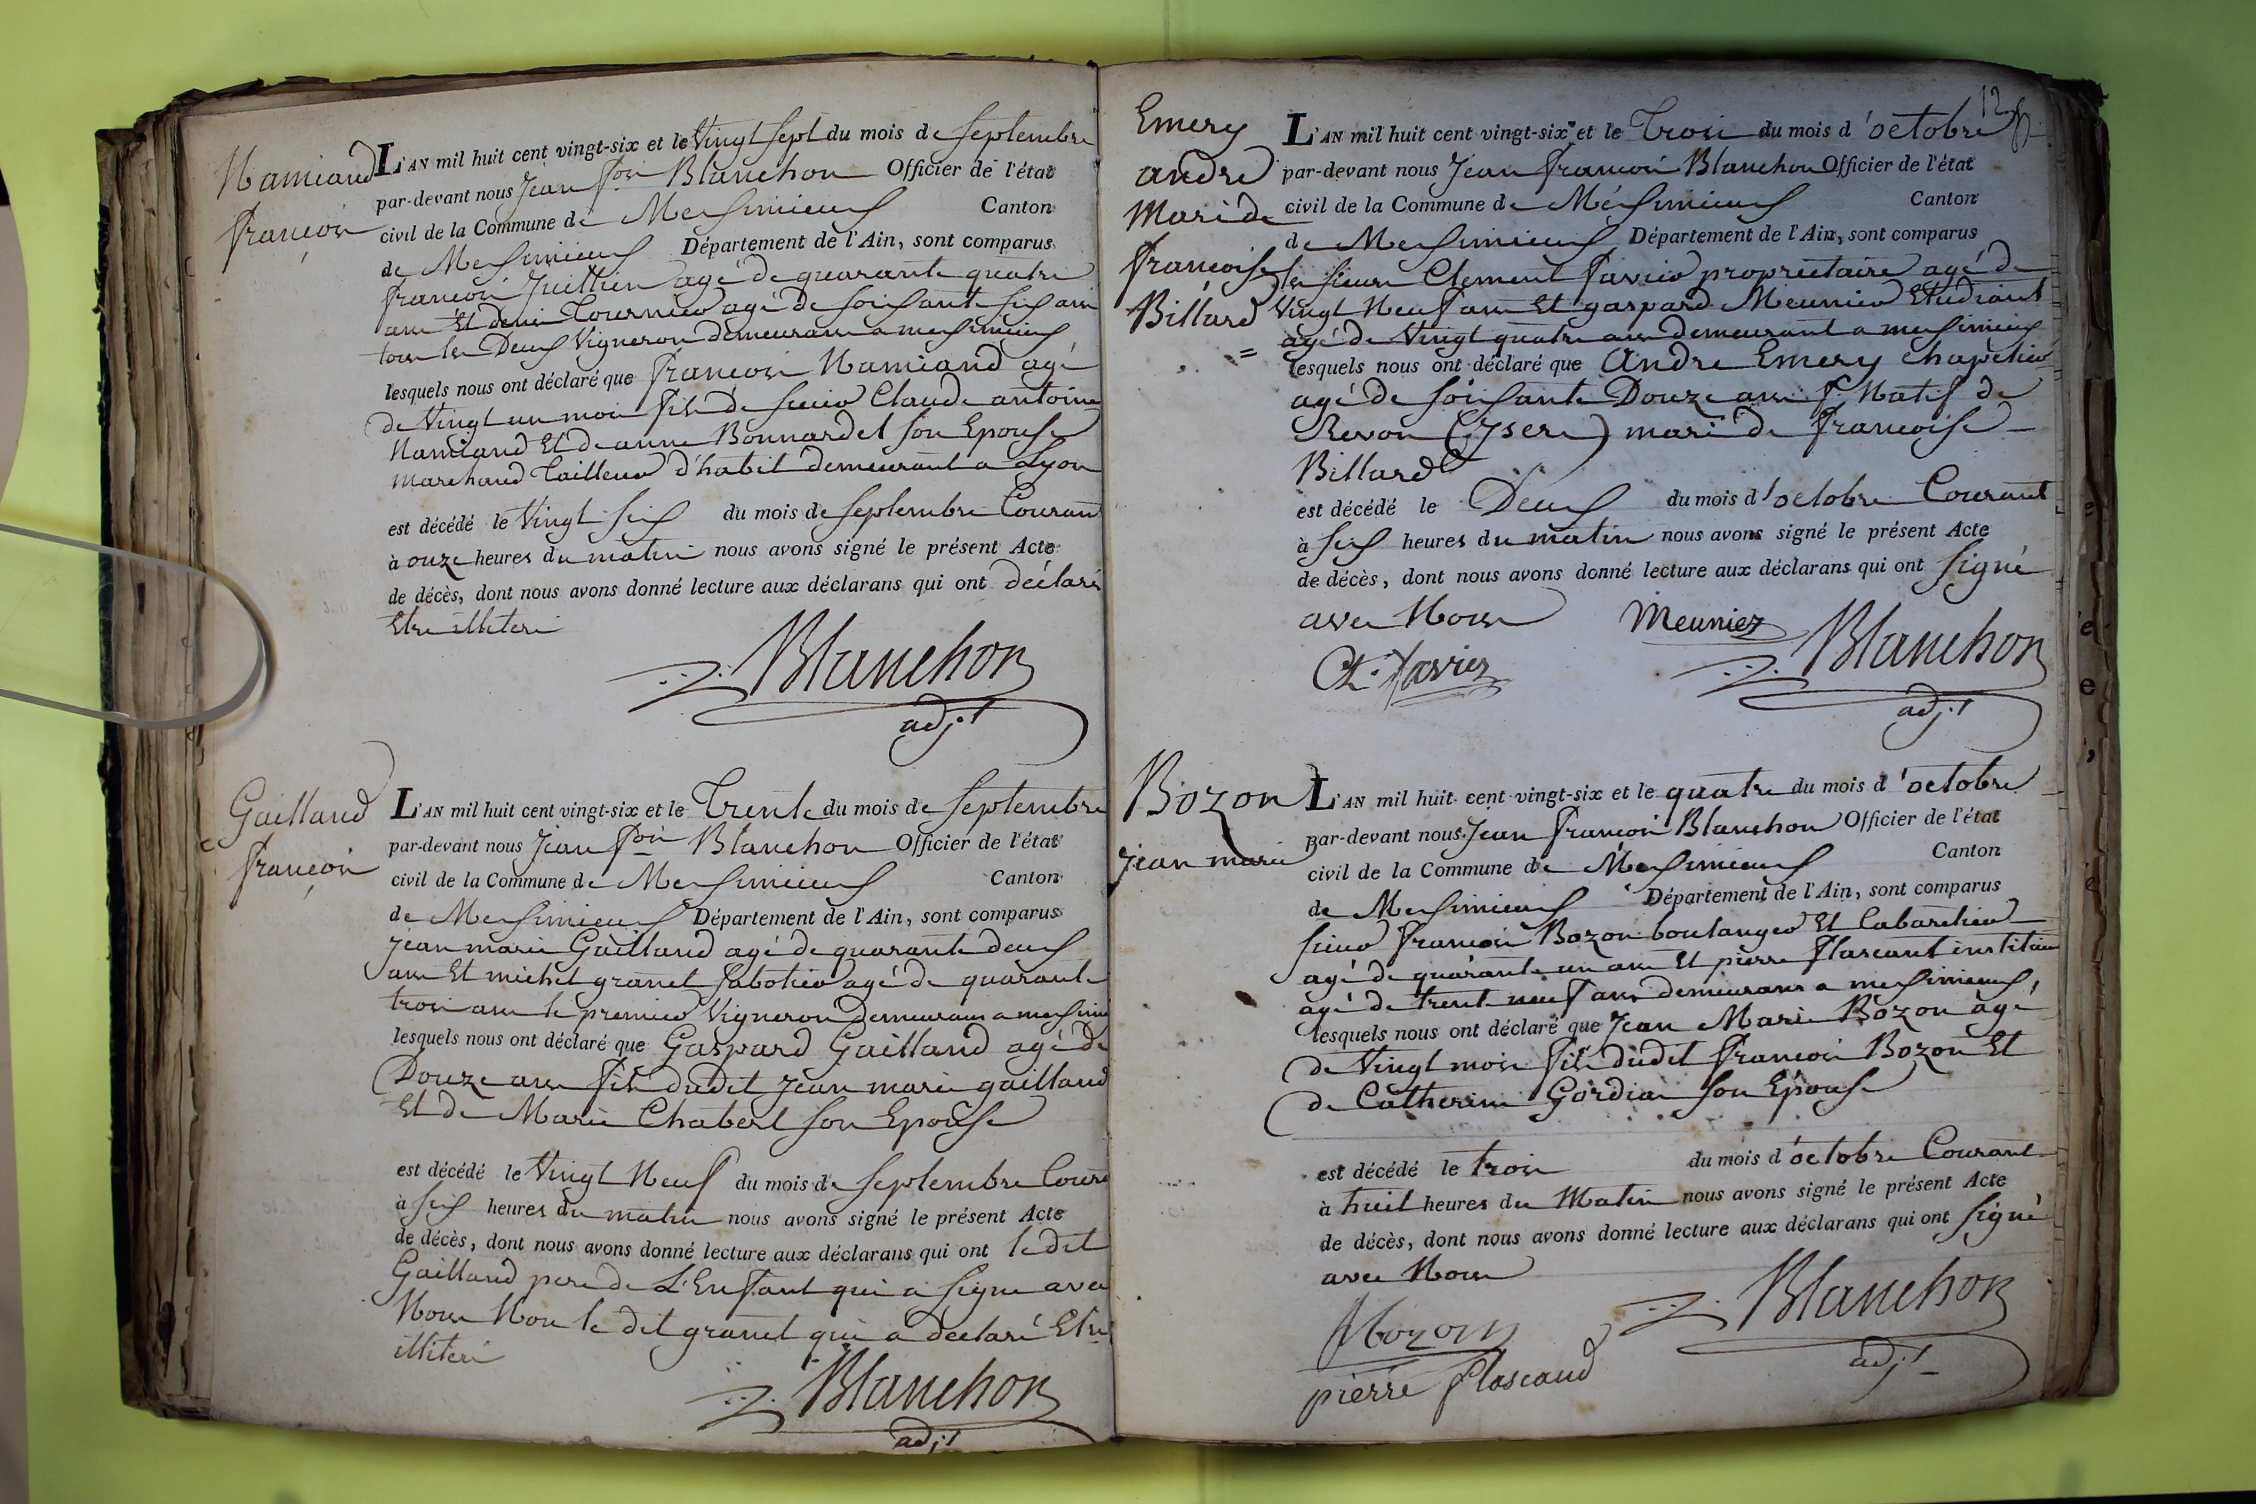 Namiand
françois
L'AN mil huit cent vingt-six et le Vingt Sept du mois de Septembre
par-devant nous Jean fois Blanchon Officier de l'état
civil de la Commune de Messimieux Canton
de Messimieux Département de l'Ain, sont comparus
françois Juillien agé de quarante quatre
ans Et denis Tournier agé de soissante six ans
tous les Deux Vigneron demeurans a messimieux
lesquels nous ont déclaré que françois Namiand agé
de Vingt un mois fils de sieur Claude antoine
Namiand Et de anne Bonnardel son Epouse
marchand Tailleur d'habit demeurant a Lyon
est décédé le Vingt Six du mois de Septembre Courant
à onze heures du matin nous avons signé le présent Acte
de décès, dont nous avons donné lecture aux déclarans qui ont déclaré
Etre illiteré
Blanchon
adj.t
Gailland
françois
L'AN mil huit cent vingt-six et le Trente du mois de Septembre
par-devant nous Jean fois Blanchon Officier de l'état
civil de la Commune de Messimieux Canton
de Messimieux Département de l'Ain, sont comparus
jean marie Gailland agé de quarante deux
ans Et michel granet sabotier agé de quarante
trois ans le premier Vigneron demeurans a messimi
lesquels nous ont déclaré que Gaspard Gailland agé de
Douze ans fils dudit jean marie gailland
Et de Marie Chabert son Epouse
est décédé le Vingt Neuf du mois de Septembre Cour
à Six heures du matin nous avons signé le présent Acte
de décès, dont nous avons donné lecture aux déclarans qui ont le dit
Gailland pere de L'Enfant qui a signe avec
Nous Non le dit granet qui a declaré Etre
illiteré
Blanchon
adj.t
12
Emery
andré
Mari de
françoise
Billard
=
L'AN mil huit cent vingt-six et le Trois du mois d'octobre
par-devant nous Jean françois Blanchon Officier de l'état
civil de la Commune de Messimieux Canton
de Messimieux Département de l'Ain, sont comparus
les sieurs Clement Favier propriétaire agé de
Vingt Neuf ans Et gaspard Meunier Etudiant
agé de Vingt quatre ans demeurant a messimieux
lesquels nous ont déclaré que André Emery chapelier
agé de soissante Douze ans Natif de
Revon (ysere) mari de françoise
Billard
est décédé le Deux du mois d'octobre Courant
à Six heures du matin nous avons signé le présent Acte
de décès, dont nous avons donné lecture aux déclarans qui ont signé
avec Nous Meunier Blanchon
Ct. favier adj.t
Bozon
jean marie
L'AN mil huit cent vingt-six et le quatre du mois d'octobre
par-devant nous Jean françois Blanchon Officier de l'état
civil de la Commune de Messimieux Canton
de Messimieux Département de l'Ain, sont comparus
sieur françois Bozon boulanger Et Cabaretier
agé de quarante un ans Et pierre flascaut institut
agé de trente neuf ans demeurans a messimieux
lesquels nous ont déclaré que Jean Marie Bozon agé
de Vingt mois fils dudit françois Bozon Et
de Catherine Gordia son Epouse
est décédé le trois du mois d'octobre Courant
à huit heures du Matin nous avons signé le présent Acte
de décès, dont nous avons donné lecture aux déclarans qui ont signé
avec Nous
Bozon Blanchon
pierre flascaud adj.t